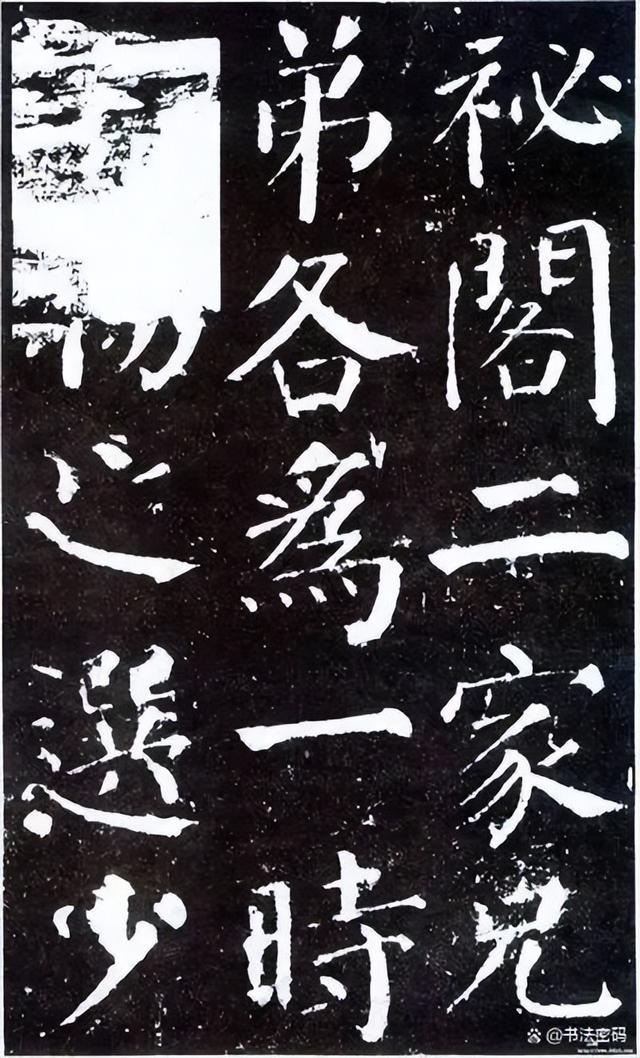 祕閣二家兄
弟各爲一時
之選少
@书法密码